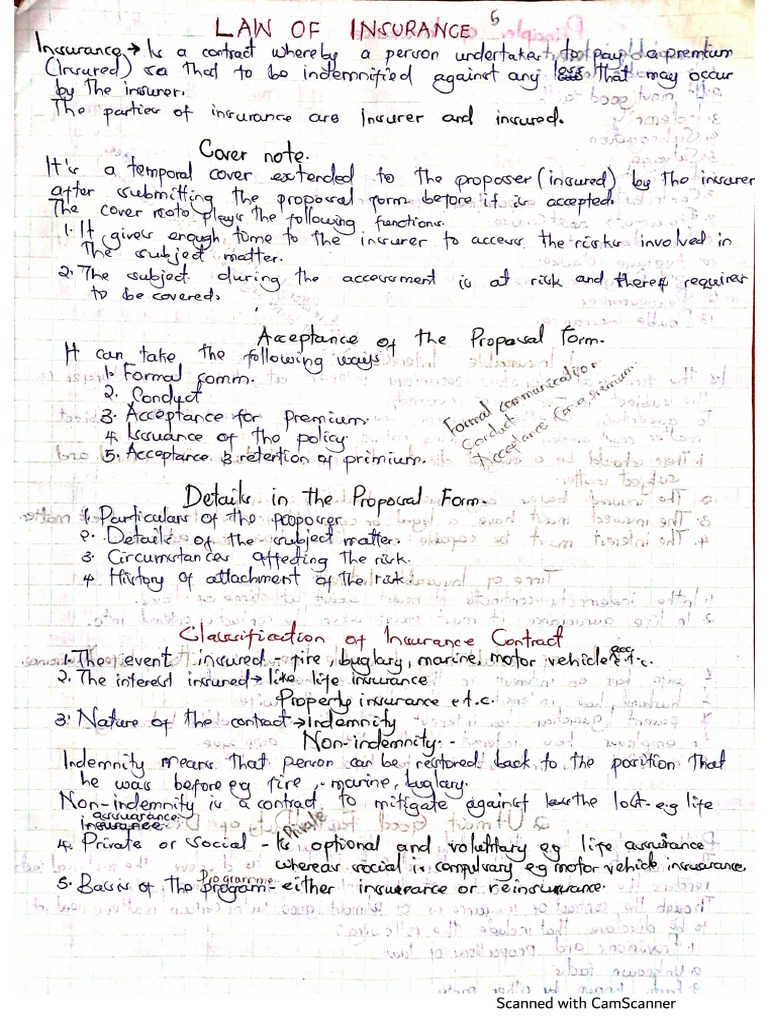 LAW OF INSURANCE 5
Insurance → Is a contract whereby a person undertakes to pay a premium
(Insured) so that to be indemnified against any loss that may occur
by the insurer.
The parties of insurance are Insurer and insured.
Cover note.
It's a temporal cover extended to the proposer (insured) by the insurer
after submitting the proposal form before it is accepted.
The cover note plays the following functions.
1. It gives enough time to the insurer to access the risks involved in
the subject matter.
2. The subject during the accessment is at risk and requires
to be covered.
Acceptance of the Proposal Form.
It can take the following ways
1. Formal comm.
2. Conduct
3. Acceptance for premium.
4. Issuance of the policy.
5. Acceptance & retention of primium.
Formal communication
Conduct
Acceptance
Details in the Proposal Form.
1. Particulars of the pooposer
2. Details of the subject matter.
3. Circumstances affecting the risk.
4. History of attachment of the risk.
Classification of Insurance Contract
1. The event insured - fire, buglary, marine, motor vehicle acc e.t.c.
2. The interest insured → like life insurance
Property insurance e.t.c.
3. Nature of the contract → indemnity
Non-indemnity. -
Indemnity means that person can be restored back to the position that
he was before eg fire, - marine, buglary.
Non-indemnity is a contract to mitigate against the lost - e.g life
assuarance
insurance.
4. Private or social - private Is optional and voluntary eg life assurance
whereas social is compulsary eg motor vehicle insurance.
5. Basis of the program Programme - either insurance or reinsurance.
Scanned with CamScanner